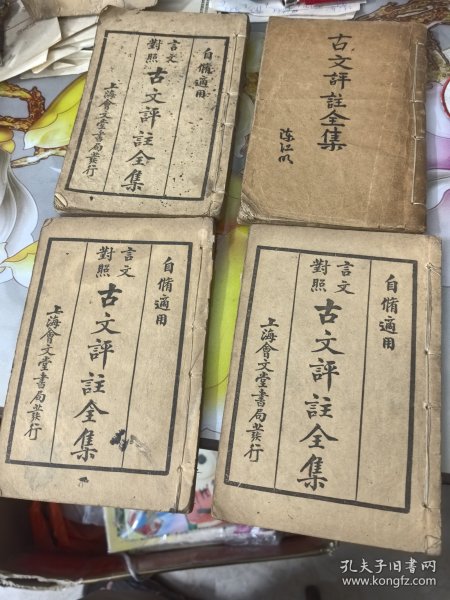 自脩適用
言文
對照
古文評註全集
上海會文堂書局發行
古文評註全集
自脩適用
言文
對照
古文評註全集
上海會文堂書局發行
自脩適用
言文
對照
古文評註全集
上海會文堂書局發行
孔夫子旧书网
www.kongfz.com